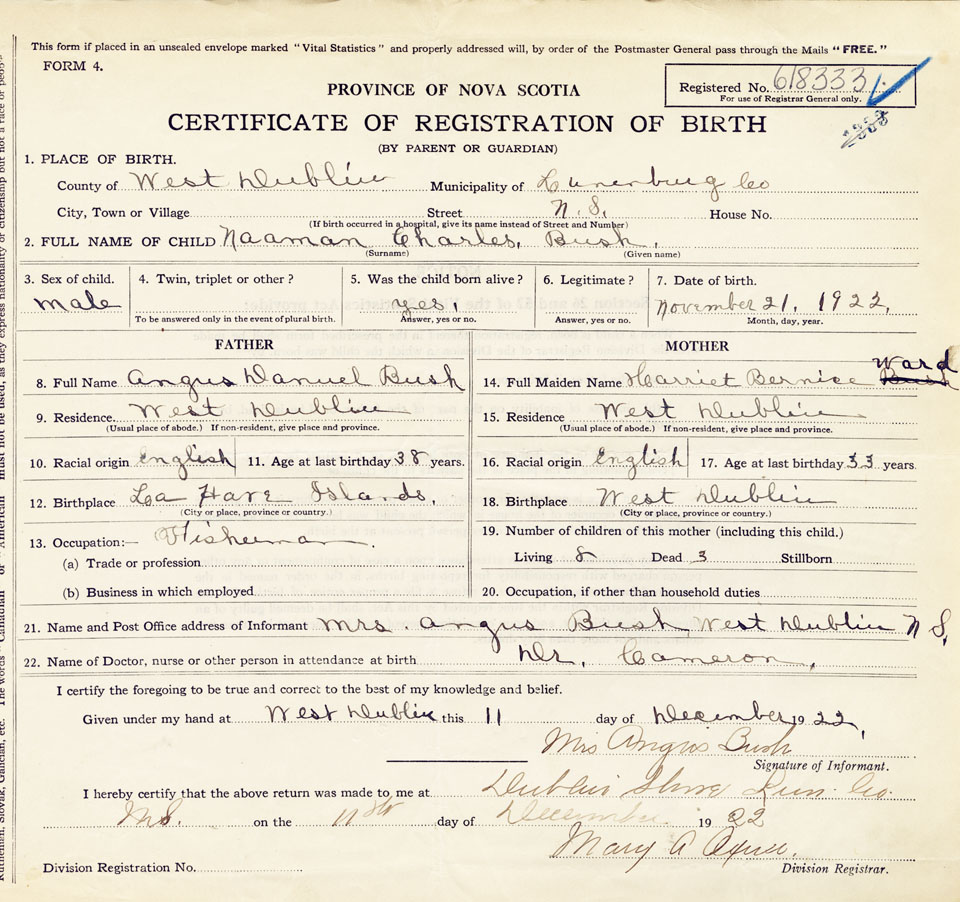 This form if placed in an unsealed envelope marked "Vital Statistics" and properly addressed will, by order of the Postmaster General pass through the Mails "FREE."
FORM 4.
Registered No. 618333
For use of Registrar General only.
PROVINCE OF NOVA SCOTIA
CERTIFICATE OF REGISTRATION OF BIRTH
(BY PARENT OR GUARDIAN)
1. PLACE OF BIRTH.
County of West Dublin Municipality of Lunenburg Co
City, Town or Village Street N.S. House No.
(If birth occurred in a hospital, give its name instead of Street and Number)
2. FULL NAME OF CHILD Naaman Charles, Bush,
(Surname) (Given name)
3. Sex of child. 4. Twin, triplet or other? 5. Was the child born alive? 6. Legitimate? 7. Date of birth.
male yes, November 21, 1922,
To be answered only in the event of plural birth. Answer, yes or no. Answer, yes or no. Month, day, year.
FATHER MOTHER
8. Full Name Angus Danuel Bush 14. Full Maiden Name Harriet Bernice Bush Ward
9. Residence West Dublin 15. Residence West Dublin
(Usual place of abode.) If non-resident, give place and province. (Usual place of abode.) If non-resident, give place and province.
10. Racial origin English 11. Age at last birthday 38 years. 16. Racial origin English 17. Age at last birthday 33 years.
12. Birthplace La Have Islands, 18. Birthplace West Dublin
(City or place, province or country.) (City or place, province or country.)
13. Occupation:— Fisherman. 19. Number of children of this mother (including this child.)
(a) Trade or profession Living 8 Dead 3 Stillborn
(b) Business in which employed 20. Occupation, if other than household duties
21. Name and Post Office address of Informant Mrs. Angus Bush West Dublin N S,
22. Name of Doctor, nurse or other person in attendance at birth Dr. Cameron,
I certify the foregoing to be true and correct to the best of my knowledge and belief.
Given under my hand at West Dublin this 11 day of December 1922,
Mrs Angus Bush
Signature of Informant.
I hereby certify that the above return was made to me at Dublin Shore Lun. Co.
N.S. on the 11th day of December 1922
Mary A
Division Registration No. Division Registrar.